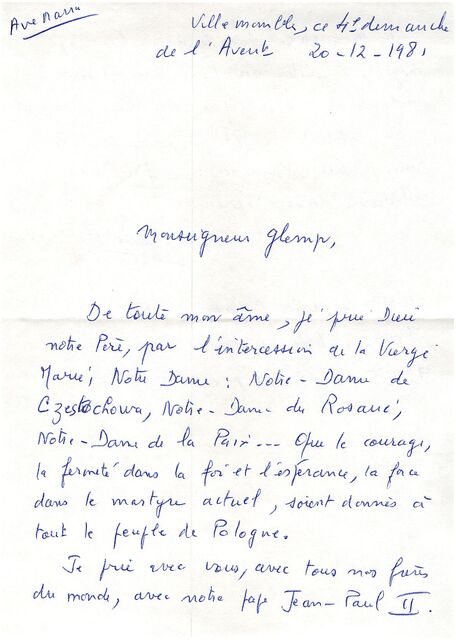 Ave Maria
Villemomble, ce 4e dimanche
de l'Avent 20-12-1981
Monseigneur Glemp,
De toute mon âme, je prie Dieu
notre Père, par l'intercession de la Vierge
Marie, Notre Dame : Notre-Dame de
Częstochowa, Notre-Dame du Rosaire,
Notre-Dame de la Paix --- Que le courage,
la fermeté dans la foi et l'espérance, la force
dans le martyre actuel, soient donnés à
tout le peuple de Pologne.
Je prie avec vous, avec tous nos frères
du monde, avec notre pape Jean-Paul II.